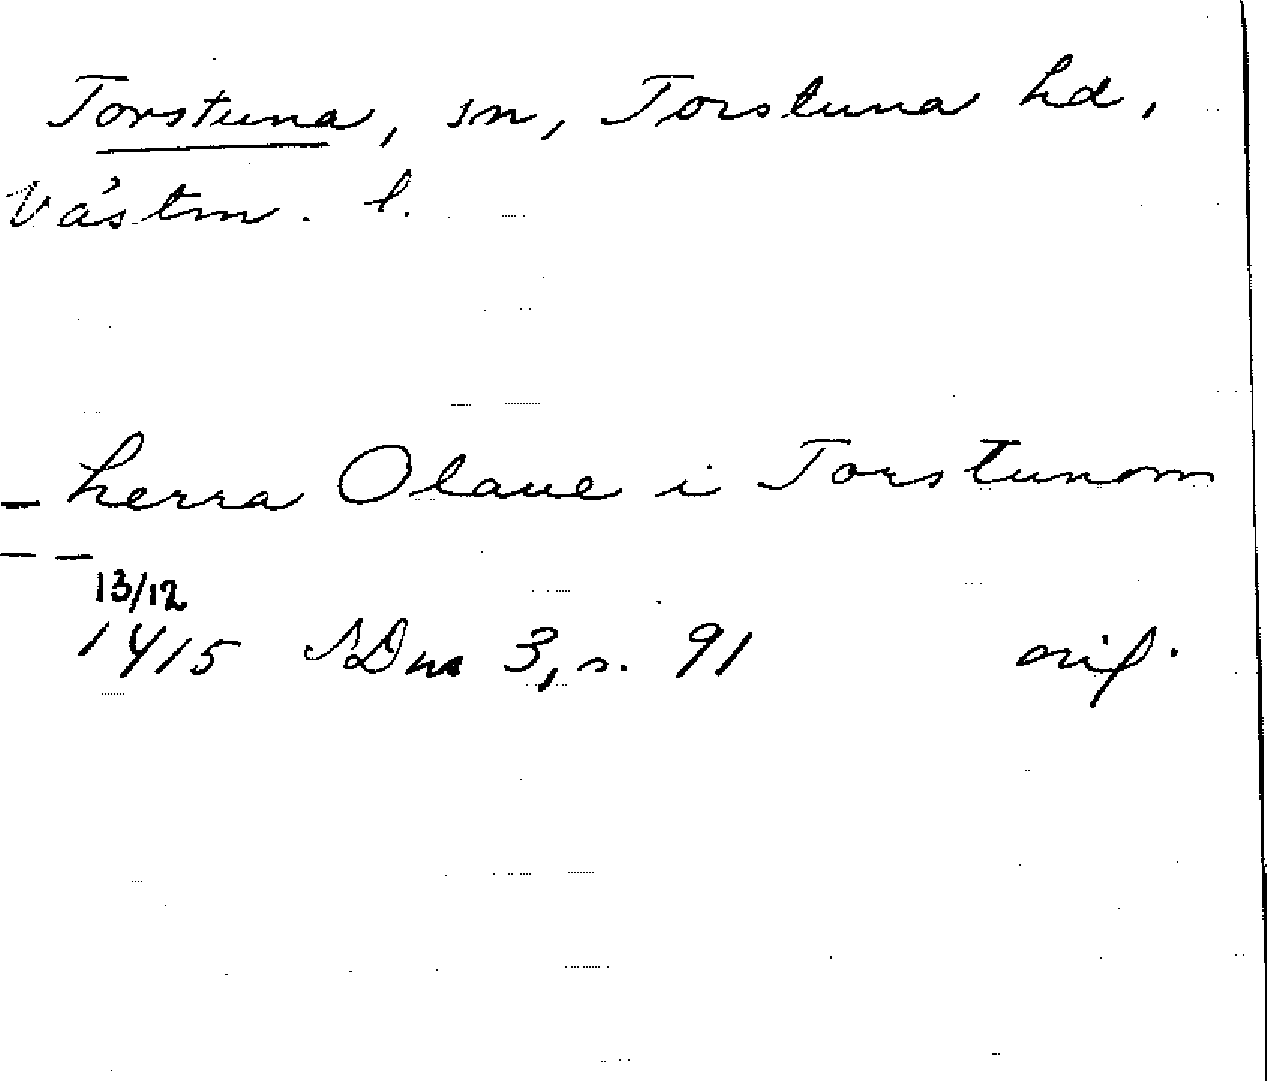 Torstuna, sn, Torstuna hd,
Västm. l.
– herra Olaue i Torstunom
– –
13/12
1415 SDns 3, s. 91 orig.